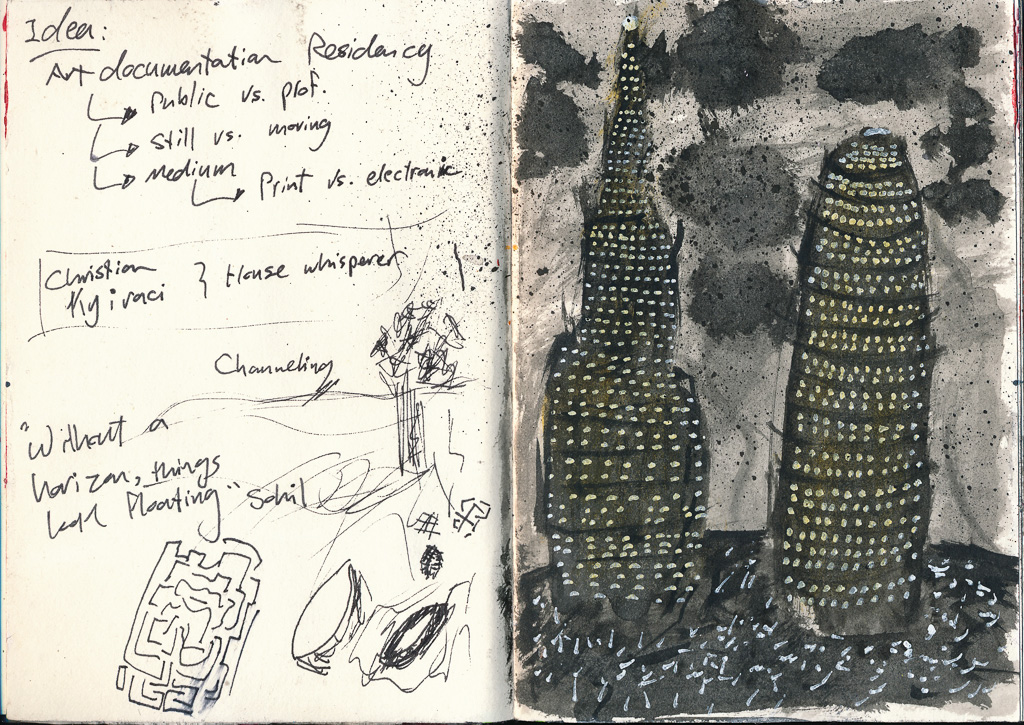 Idea:
Art documentation Residency
Public vs. prof.
Still vs. moving
medium
Print vs. electronic
Christian
} House whisperer
Channeling
"Without a
horizon, things
floating" Sohil